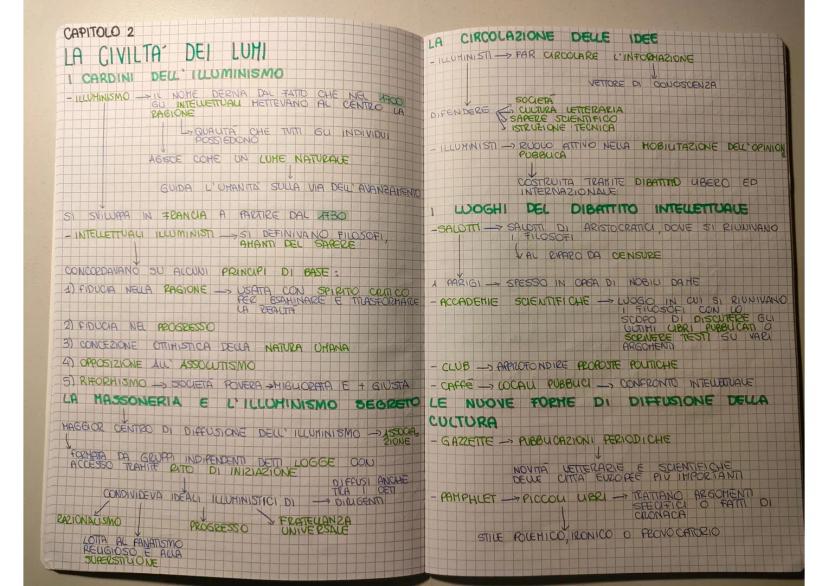 CAPITOLO 2
LA CIVILTA' DEI LUMI
I CARDINI DELL'ILLUMINISMO
- ILLUMINISMO → IL NOME DERIVA DAL FATTO CHE NEL 1700
GLI INTELLETTUALI METTEVANO AL CENTRO LA
RAGIONE
↳ QUALITÀ CHE TUTTI GLI INDIVIDUI
POSSIEDONO
AGISCE COME UN LUME NATURALE
GUIDA L'UMANITÀ SULLA VIA DELL'AVANZAMENTO
SI SVILUPPA IN FRANCIA A PARTIRE DAL 1730
- INTELLETTUALI ILLUMINISTI → SI DEFINIVANO FILOSOFI,
AMANTI DEL SAPERE
CONCORDAVANO SU ALCUNI PRINCIPI DI BASE:
1) FIDUCIA NELLA RAGIONE → USATA CON SPIRITO CRITICO
PER ESAMINARE E TRASFORMARE
LA REALTÀ
2) FIDUCIA NEL PROGRESSO
3) CONCEZIONE OTTIMISTICA DELLA NATURA UMANA
4) OPPOSIZIONE ALL'ASSOLUTISMO
5) RIFORMISMO → SOCIETÀ POVERA → MIGLIORATA E + GIUSTA
LA MASSONERIA E L'ILLUMINISMO SEGRETO
MAGGIOR CENTRO DI DIFFUSIONE DELL'ILLUMINISMO → ASSOCIA
ZIONE
FORMATA DA GRUPPI INDIPENDENTI DETTI LOGGE CON
ACCESSO TRAMITE RITO DI INIZIAZIONE
CONDIVIDEVA IDEALI ILLUMINISTICI DI → DIFFUSI ANCHE
TRA CETI
DIRIGENTI
RAZIONALISMO
PROGRESSO
FRATELLANZA
UNIVERSALE
LOTTA AL FANATISMO
RELIGIOSO E ALLA
SUPERSTIZIONE
LA CIRCOLAZIONE DELLE IDEE
- ILLUMINISTI → FAR CIRCOLARE L'INFORMAZIONE
VETTORE DI CONOSCENZA
DIFENDERE
SOCIETÀ
CULTURA LETTERARIA
SAPERE SCIENTIFICO
ISTRUZIONE TECNICA
- ILLUMINISTI → RUOLO ATTIVO NELLA MOBILITAZIONE DELL'OPINION
PUBBLICA
COSTRUITA TRAMITE DIBATTITO LIBERO ED
INTERNAZIONALE
I LUOGHI DEL DIBATTITO INTELLETTUALE
- SALOTTI → SALOTTI DI ARISTOCRATICI, DOVE SI RIUNIVANO
I FILOSOFI
↳ AL RIPARO DA CENSURE
A PARIGI → SPESSO IN CASA DI NOBILI DAME
- ACCADEMIE SCIENTIFICHE → LUOGO IN CUI SI RIUNIVANO
I FILOSOFI CON LO
SCOPO DI DISCUTERE GLI
ULTIMI LIBRI PUBBLICATI O
SCRIVERE TESTI SU VARI
ARGOMENTI
- CLUB → APPROFONDIRE PROPOSTE POLITICHE
- CAFFÈ → LOCALI PUBBLICI → CONFRONTO INTELLETTUALE
LE NUOVE FORME DI DIFFUSIONE DELLA
CULTURA
- GAZZETTE → PUBBLICAZIONI PERIODICHE
NOVITÀ LETTERARIE E SCIENTIFICHE
DELLE CITTÀ EUROPEE PIÙ IMPORTANTI
- PAMPHLET → PICCOLI LIBRI → TRATTANO ARGOMENTI
SPECIFICI O FATTI DI
CRONACA
STILE POLEMICO, IRONICO O PROVOCATORIO